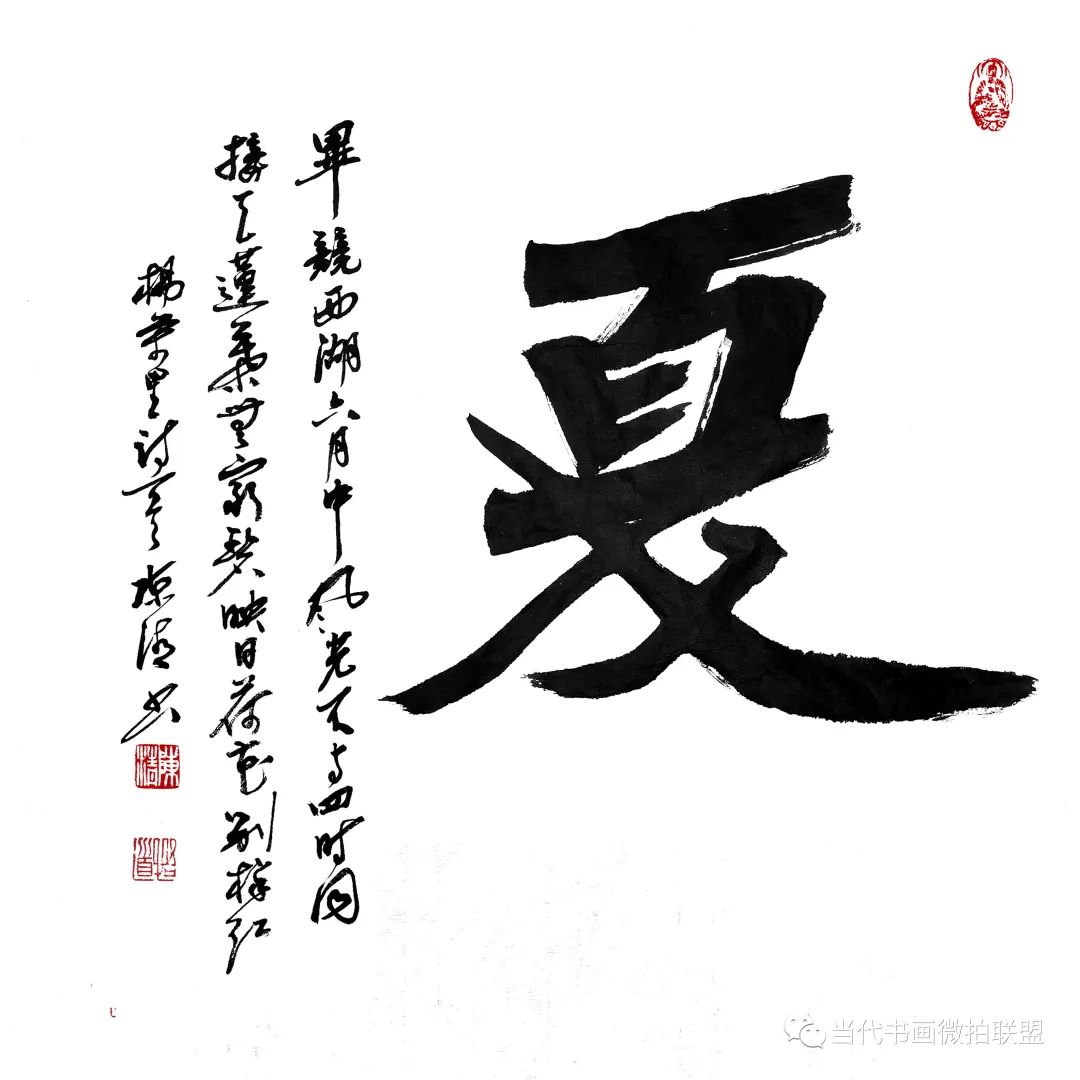 夏
畢競西湖六月中風光不与四时同
接天蓮葉無窮碧映日荷花別樣红
楊萬里詩意 书
当代书画微拍联盟